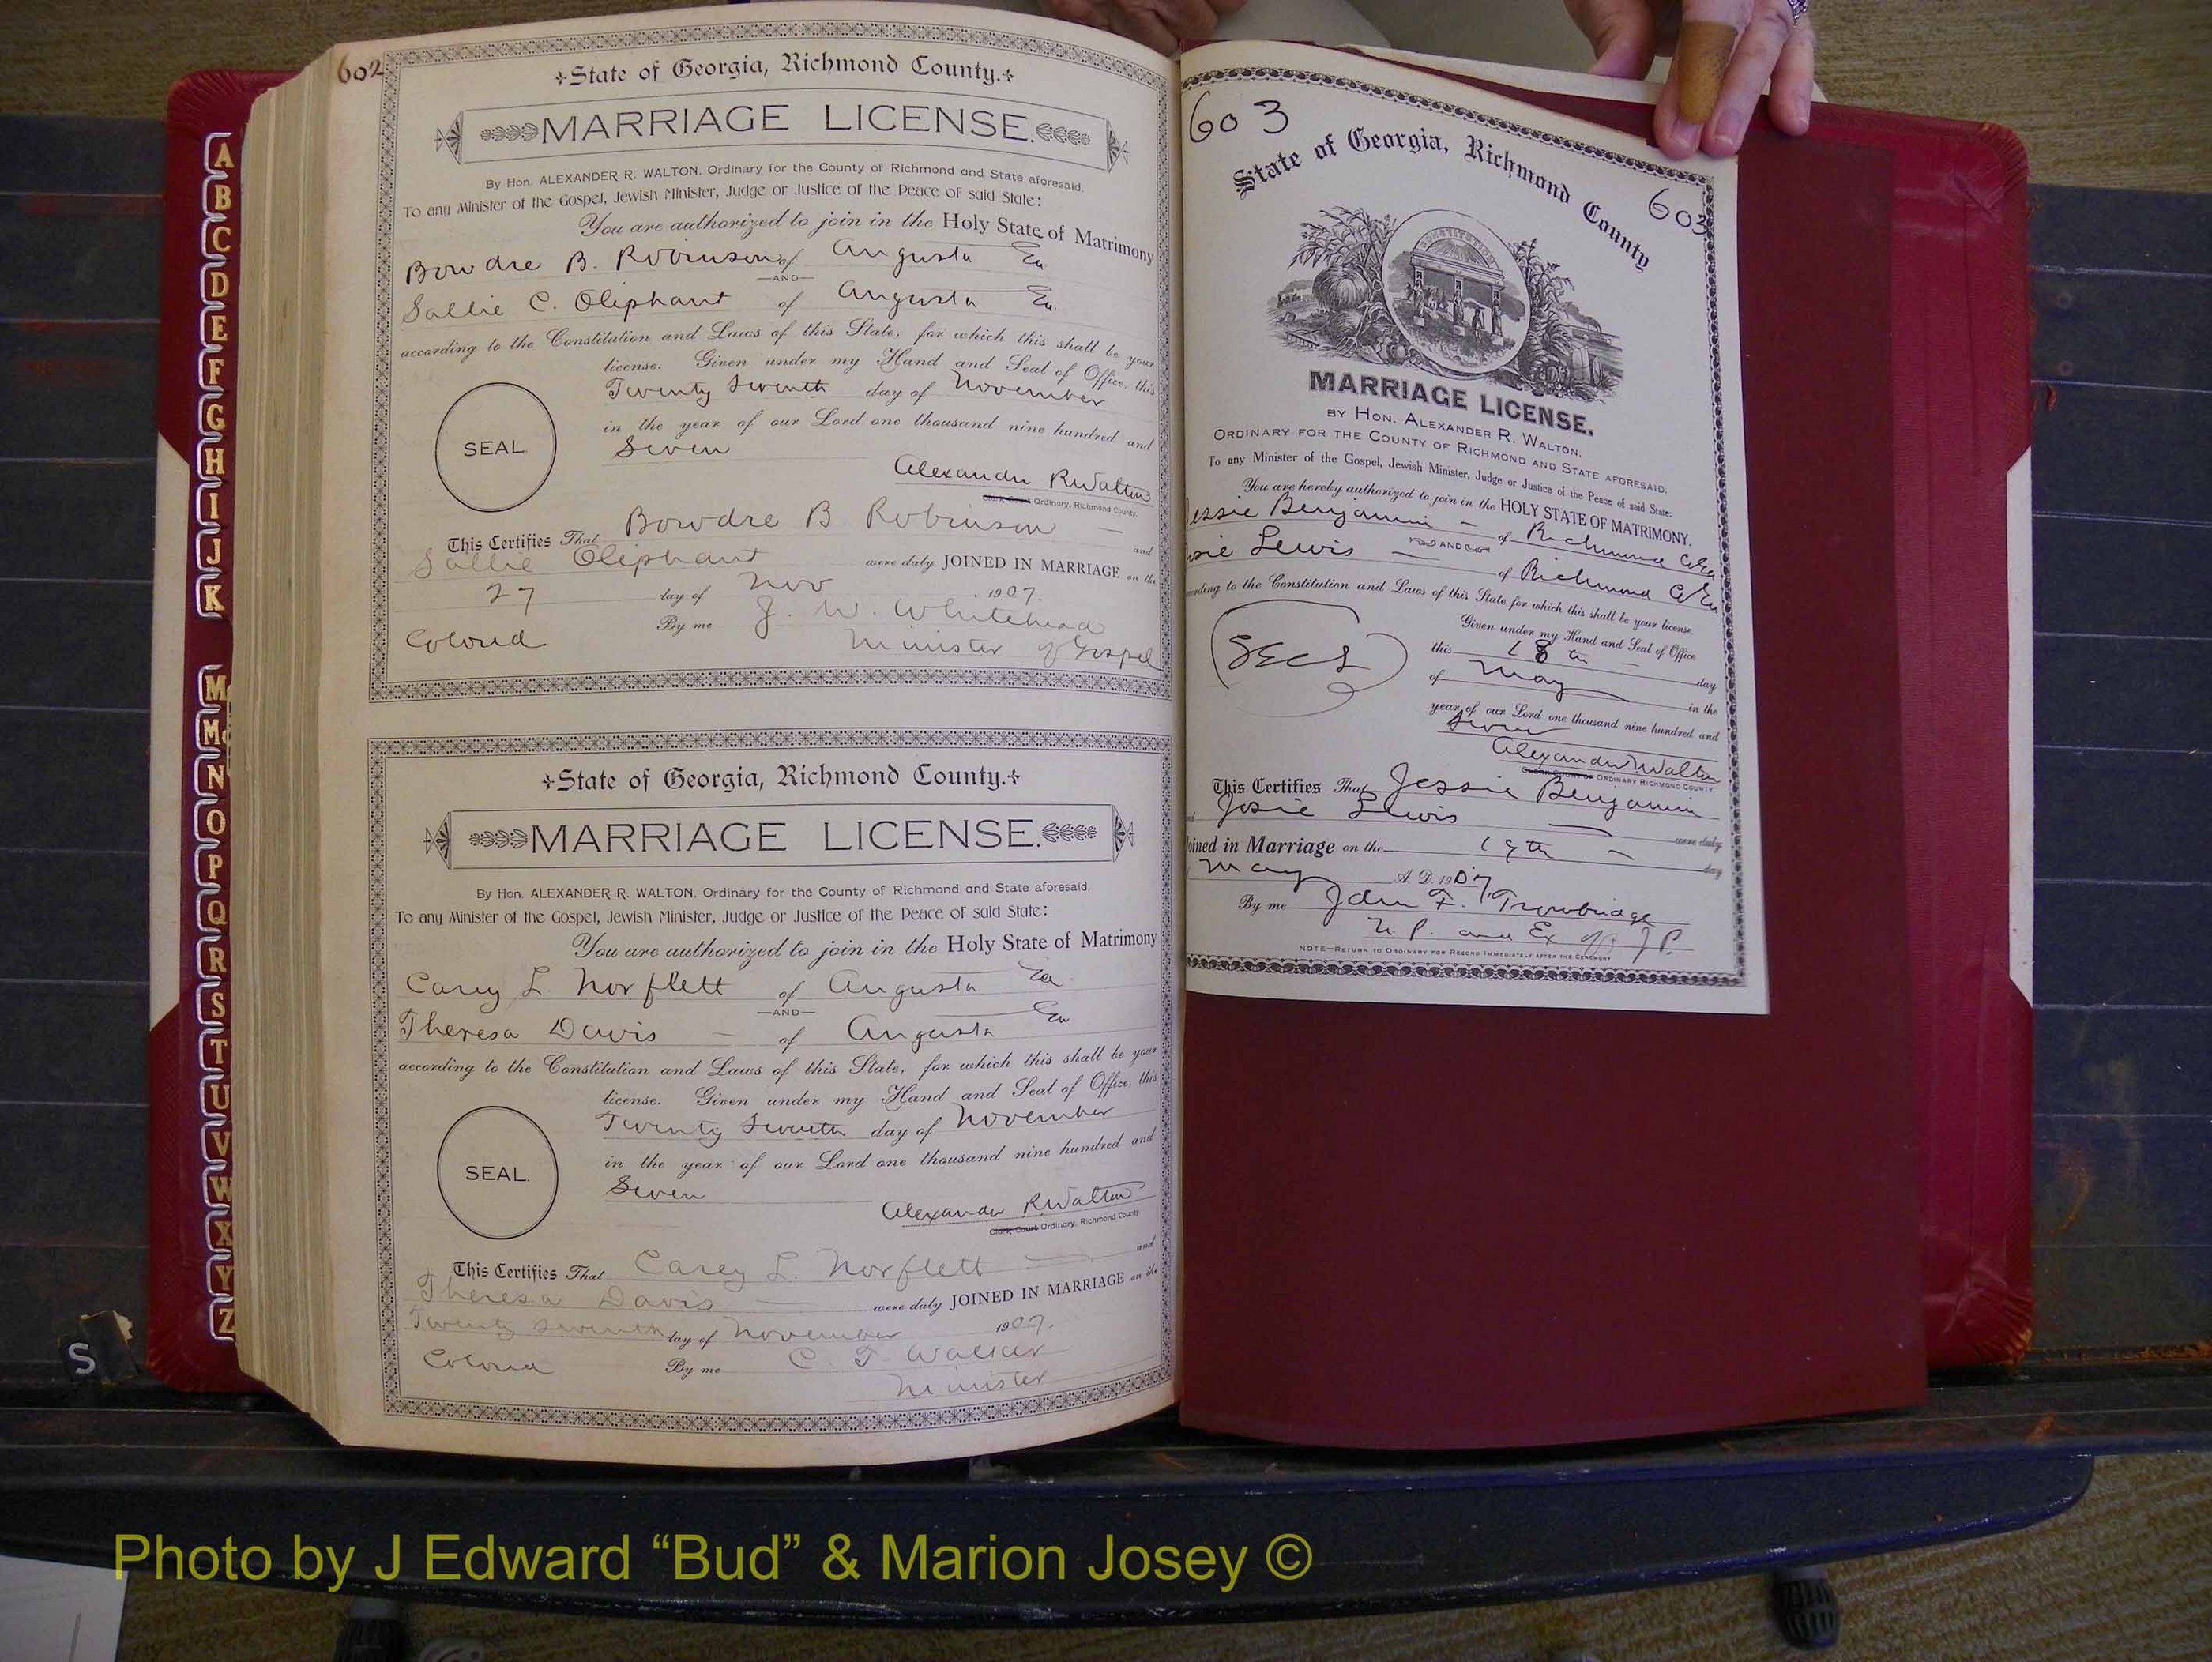 602
State of Georgia, Richmond County.
MARRIAGE LICENSE.
By Hon. ALEXANDER R. WALTON, Ordinary for the County of Richmond and State aforesaid,
To any Minister of the Gospel, Jewish Minister, Judge or Justice of the Peace of said State:
You are authorized to join in the Holy State of Matrimony
Bowdre B. Robinson of Augusta Ga
—AND—
Sallie C. Oliphant of Augusta Ga.
according to the Constitution and Laws of this State, for which this shall be your
license. Given under my Hand and Seal of Office, this
Twenty Seventh day of November
in the year of our Lord one thousand nine hundred and
Seven
SEAL.
Alexander R Walton
Clerk, Court Ordinary, Richmond County.
This Certifies That Bowdre B Robinson and
Sallie Oliphant were duly JOINED IN MARRIAGE on the
27 day of Nov 1907.
By me J. W. Whitehead
Colored Minister of Gospel
State of Georgia, Richmond County.
MARRIAGE LICENSE.
By Hon. ALEXANDER R. WALTON, Ordinary for the County of Richmond and State aforesaid,
To any Minister of the Gospel, Jewish Minister, Judge or Justice of the Peace of said State:
You are authorized to join in the Holy State of Matrimony
Carey L. Norflett of Augusta Ga
—AND—
Theresa Davis — of Augusta Ga
according to the Constitution and Laws of this State, for which this shall be your
license. Given under my Hand and Seal of Office, this
Twenty Seventh day of November
in the year of our Lord one thousand nine hundred and
Seven
SEAL.
Alexander R. Walton
Clerk, Court Ordinary, Richmond County.
This Certifies That Carey L. Norflett and
Theresa Davis — were duly JOINED IN MARRIAGE on the
Twenty Seventh day of November 1907.
Colored By me C. T. Walker
Minister
603
603
State of Georgia, Richmond County
CONSTITUTION
MARRIAGE LICENSE.
BY HON. ALEXANDER R. WALTON.
ORDINARY FOR THE COUNTY OF RICHMOND AND STATE AFORESAID.
To any Minister of the Gospel, Jewish Minister, Judge or Justice of the Peace of said State:
You are hereby authorized to join in the HOLY STATE OF MATRIMONY.
Jessie Benjamin — of Richmond Co Ga
AND
Josie Lewis — of Richmond Co Ga
according to the Constitution and Laws of this State for which this shall be your license.
Given under my Hand and Seal of Office
this 18th day
of May in the
year of our Lord one thousand nine hundred and
Seven
Alexander R Walton
ORDINARY RICHMOND COUNTY.
This Certifies That Jessie Benjamin
and Josie Lewis — were duly
Joined in Marriage on the 19th — day
May A. D. 1907.
By me John F. Trowbridge
N. P. and Ex off J P.
NOTE—RETURN TO ORDINARY FOR RECORD IMMEDIATELY AFTER THE CEREMONY
A
B
C
D
E
F
G
H
I
J
K
M
Mc
N
O
P
Q
R
S
T
U
V
W
X
Y
Z
S
Photo by J Edward “Bud” & Marion Josey ©